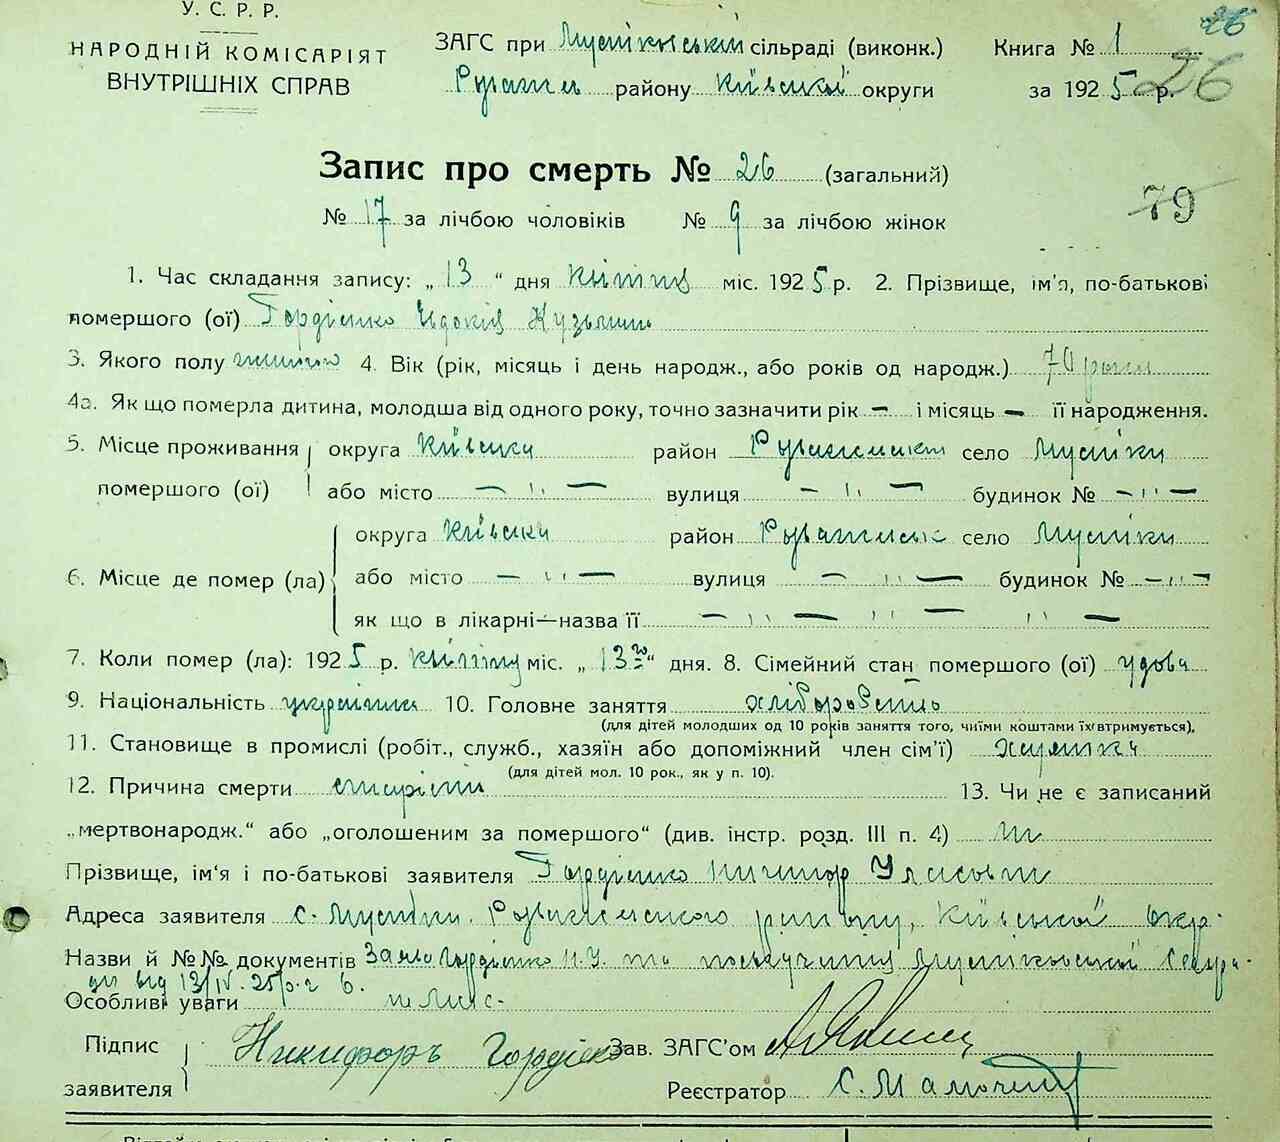 У. С. Р. Р.
НАРОДНІЙ КОМІСАРІЯТ
ВНУТРІШНІХ СПРАВ
ЗАГС при Мусійковській сільраді (виконк.)
району Київської округи
Книга № 1
за 1925 р.
26
26
Запис про смерть № 26 (загальний)
№ 17 за лічбою чоловіків № 9 за лічбою жінок
79
1. Час складання запису: „ 13 “ дня квітня міс. 1925 р. 2. Прізвище, ім'я, по-батькові
помершого (ої) Гордієнко Євдокія Кузьмин
3. Якого полу жіночо 4. Вік (рік, місяць і день народж., або років од народж.) 70 роки
4а. Як що померла дитина, молодша від одного року, точно зазначити рік — і місяць — її народження.
5. Місце проживання округа Київська район село Мусійки
помершого (ої) або місто — " — вулиця — " — будинок № — " —
округа Київська район село Мусійки
6. Місце де помер (ла) або місто — " — вулиця — " — будинок № — " —
як що в лікарні—назва її — " — " — " —
7. Коли помер (ла): 1925 р. квітня міс. „ 13го “ дня. 8. Сімейний стан помершого (ої) удова
9. Національність українка 10. Головне заняття хліборобство
(для дітей молодших од 10 років заняття того, чиїми коштами їх втримується),
11. Становище в промислі (робіт., служб., хазяїн або допоміжний член сім'ї)
(для дітей мол. 10 рок., як у п. 10).
12. Причина смерти старість 13. Чи не є записаний
„мертвонародж.“ або „оголошеним за помершого“ (див. інстр. розд. III п. 4) ні
Прізвище, ім'я і по-батькові заявителя Гордієнко Ничипор Уласович
Адреса заявителя с. Мусійки. району, Київської окр.
Назви й №№ документів Заява Гордієнко Н. У. та посвідчення Мусійковської Сільра-
ди від 13/IV. 25 р. № 6.
Особливі уваги
Підпис
заявителя
Никифоръ Гордієнко Зав. ЗАГС'ом
Реєстратор С.